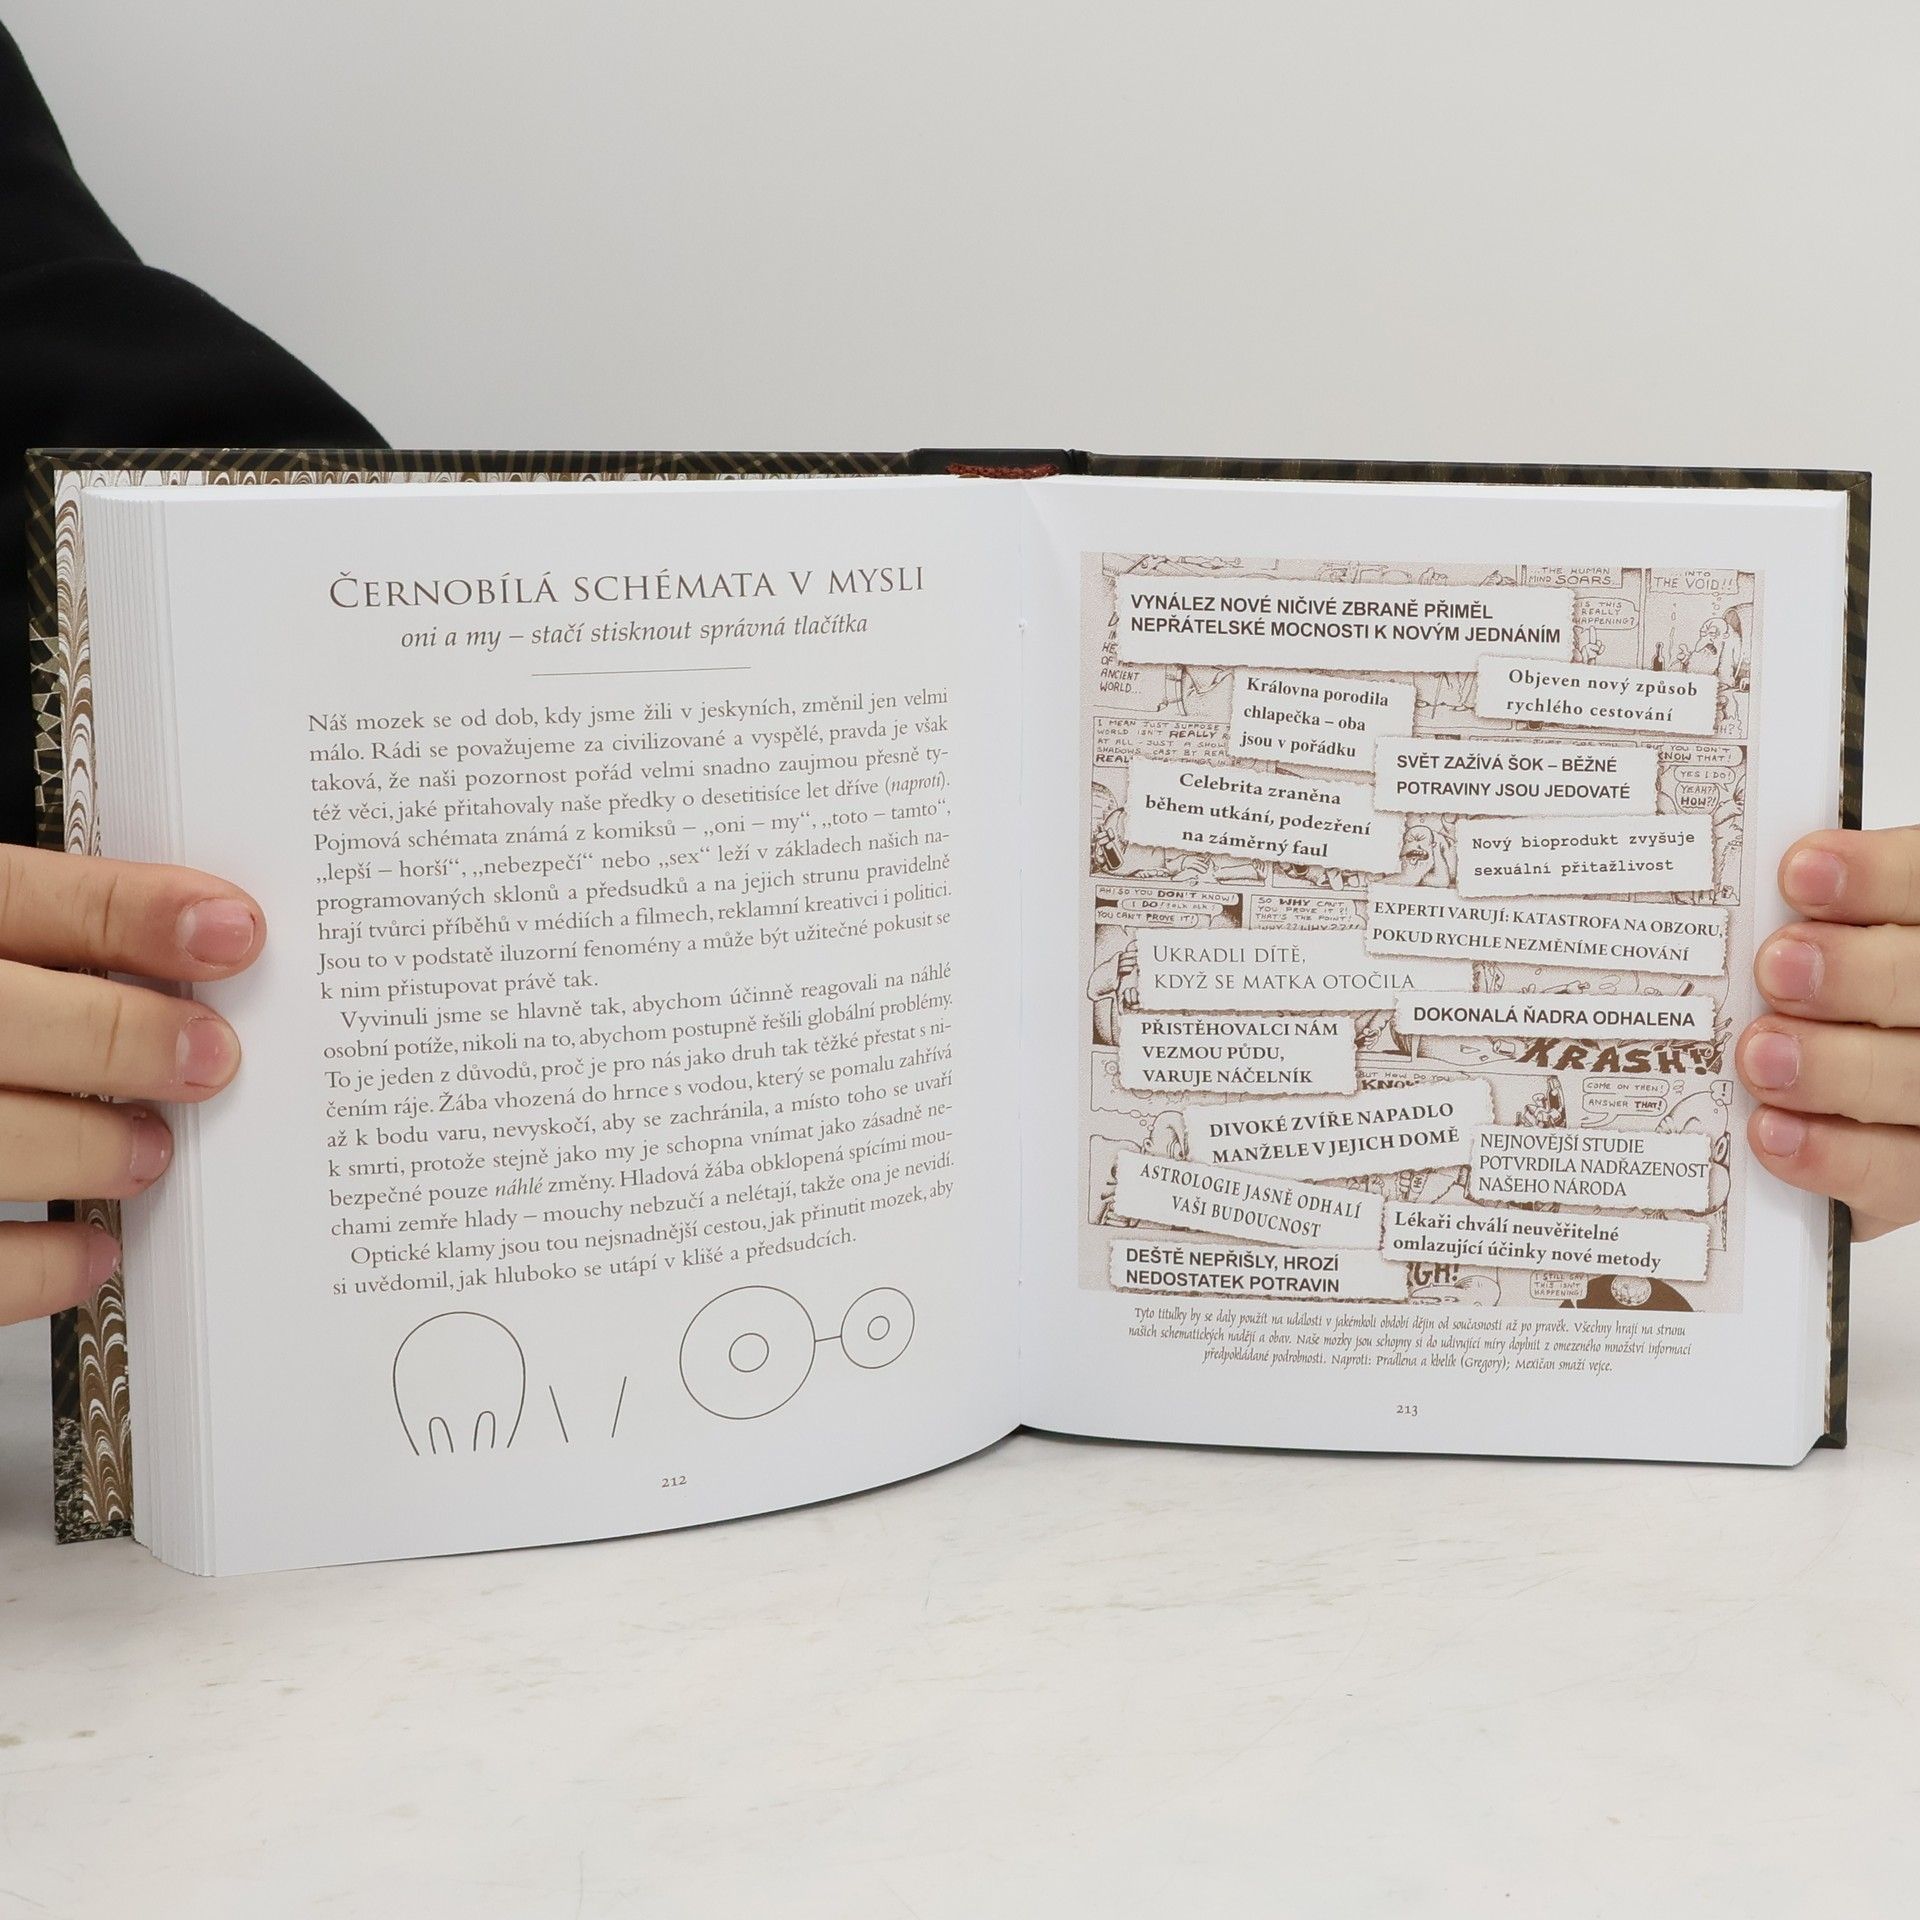 ČERNOBÍLÁ SCHÉMATA V MYSLI
oni a my – stačí stisknout správná tlačítka
Náš mozek se od dob, kdy jsme žili v jeskyních, změnil jen velmi
málo. Rádi se považujeme za civilizované a vyspělé, pravda je však
taková, že naši pozornost pořád velmi snadno zaujmou přesně ty-
též věci, jaké přitahovaly naše předky o desetitisíce let dříve (naproti).
Pojmová schémata známá z komiksů – „oni – my“, „toto – tamto“,
„lepší – horší“, „nebezpečí“ nebo „sex“ leží v základech našich na-
programovaných sklonů a předsudků a na jejich strunu pravidelně
hrají tvůrci příběhů v médiích a filmech, reklamní kreativci i politici.
Jsou to v podstatě iluzorní fenomény a může být užitečné pokusit se
k nim přistupovat právě tak.
Vyvinuli jsme se hlavně tak, abychom účinně reagovali na náhlé
osobní potíže, nikoli na to, abychom postupně řešili globální problémy.
To je jeden z důvodů, proč je pro nás jako druh tak těžké přestat s ni-
čením ráje. Žába vhozená do hrnce s vodou, který se pomalu zahřívá
až k bodu varu, nevyskočí, aby se zachránila, a místo toho se uvaří
k smrti, protože stejně jako my je schopna vnímat jako zásadně ne-
bezpečné pouze náhlé změny. Hladová žába obklopená spícími mou-
chami zemře hlady – mouchy nebzučí a nelétají, takže ona je nevidí.
Optické klamy jsou tou nejsnadnější cestou, jak přinutit mozek, aby
si uvědomil, jak hluboko se utápí v klišé a předsudcích.
212
...THE HUMAN
MIND SOARS...
...INTO
THE VOID!!
VYNÁLEZ NOVÉ NIČIVÉ ZBRANĚ PŘIMĚL
NEPŘÁTELSKÉ MOCNOSTI K NOVÝM JEDNÁNÍM
IS THIS
REALLY
HAPPENING?
OF THE
ANCIENT
WORLD...
Objeven nový způsob
rychlého cestování
Královna porodila
chlapečka – oba
jsou v pořádku
I MEAN JUST SUPPOSE
WORLD ISN'T REALLY
AT ALL - JUST A SHOW
SHADOWS CAST BY REAL
REAL THINGS IN
SVĚT ZAŽÍVÁ ŠOK – BĚŽNÉ
POTRAVINY JSOU JEDOVATÉ
BUT YOU DON'T
KNOW THAT!
YES I DO!
YEAH??
HOW?!
Celebrita zraněna
během utkání, podezření
na záměrný faul
Nový bioprodukt zvyšuje
sexuální přitažlivost
AH! SO YOU DON'T KNOW!
I DO!
YOU CAN'T PROVE IT!
SO WHY CAN'T
YOU PROVE IT?!
THAT'S THE POINT!
EXPERTI VARUJÍ: KATASTROFA NA OBZORU,
POKUD RYCHLE NEZMĚNÍME CHOVÁNÍ
UKRADLI DÍTĚ,
KDYŽ SE MATKA OTOČILA
DOKONALÁ ŇADRA ODHALENA
PŘISTĚHOVALCI NÁM
VEZMOU PŮDU,
VARUJE NÁČELNÍK
KRASH!
BUT HOW DO YOU
KNOW
COME ON THEN!
ANSWER THAT!
DIVOKÉ ZVÍŘE NAPADLO
MANŽELE V JEJICH DOMĚ
NEJNOVĚJŠÍ STUDIE
POTVRDILA NADŘAZENOST
NAŠEHO NÁRODA
ASTROLOGIE JASNĚ ODHALÍ
VAŠI BUDOUCNOST
Lékaři chválí neuvěřitelné
omlazující účinky nové metody
DEŠTĚ NEPŘIŠLY, HROZÍ
NEDOSTATEK POTRAVIN
I STILL SAY
THIS ISN'T
HAPPENING!
Tyto titulky by se daly použít na události v jakémkoli období dějin od současnosti až po pravěk. Všechny hrají na strunu
našich schematických nadějí a obav. Naše mozky jsou schopny si do udivující míry doplnit z omezeného množství informací
předpokládané podrobnosti. Naproti: Pradlena a kbelík (Gregory); Mexičan smaží vejce.
213